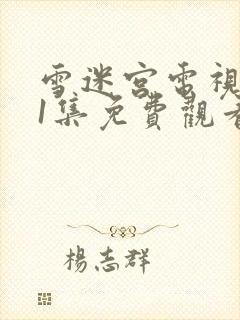 雪迷宮電視
1集免費觀看
楊志群